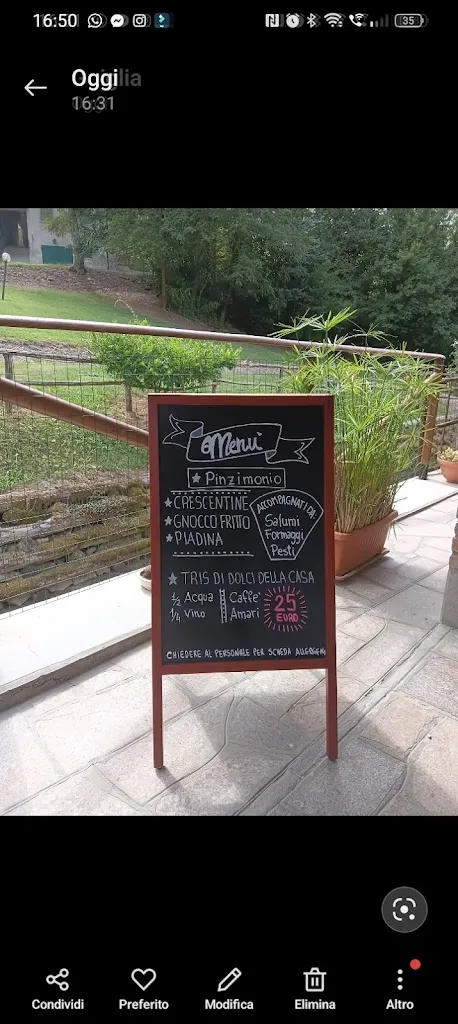 16:50
35
Oggi
16:31
Menu'
Pinzimonio
CRESCENTINE
GNOCCO FRITTO
PIADINA
ACCOMPAGNATI DA
Salumi
Formaggi
Pesti
TRIS DI DOLCI DELLA CASA
1/2 Acqua
1/4 Vino
Caffe'
Amari
25
EURO
CHIEDERE AL PERSONALE PER SCHEDA ALLERGENI
Condividi
Preferito
Modifica
Elimina
Altro